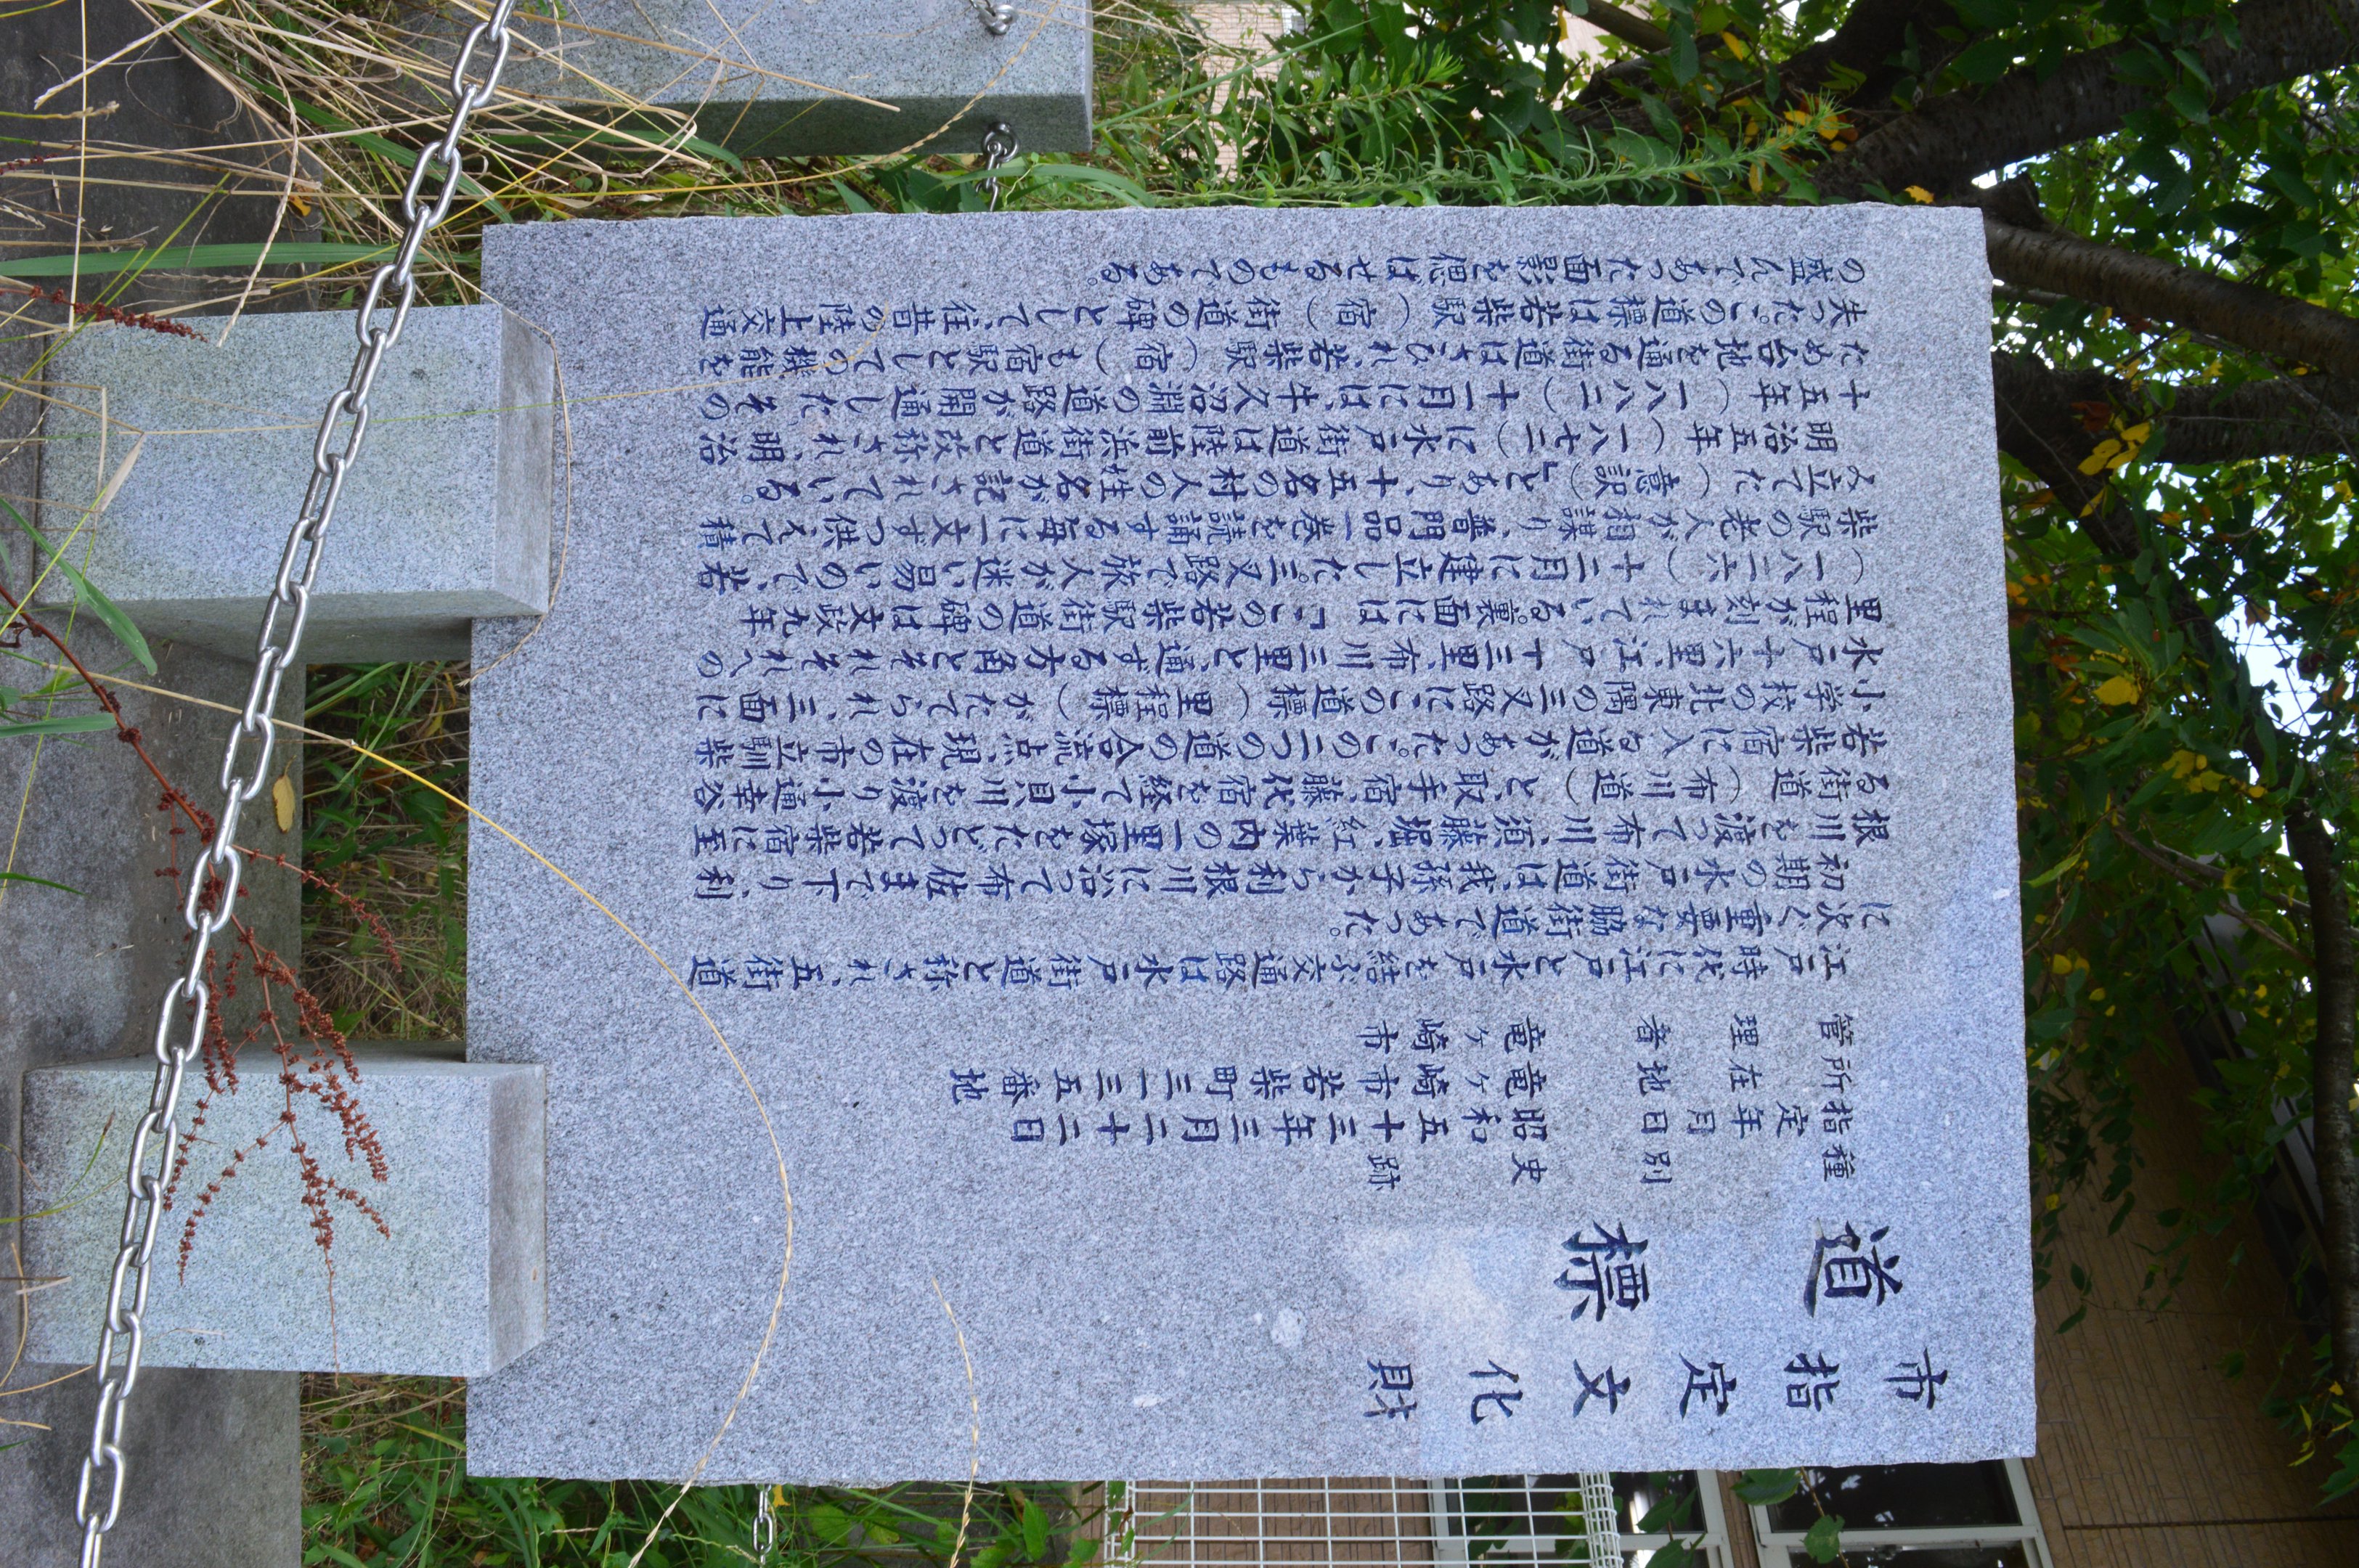 市指定文化財
道標
種別　史跡
指定年月日　昭和五十三年三月二十二日
所在地　竜ヶ崎市若柴町三一三五番地
管理者　竜ヶ崎市
江戸時代に江戸と水戸を結ぶ交通路は水戸街道と称され、五街道
に次ぐ重要な脇街道であった。
初期の水戸街道は、我孫子から利根川に沿って布佐まで下り、利
根川を渡って布川、須藤堀、紅葉内の一里塚をたどって若柴宿に至
る街道（布川道）と、取手宿、藤代宿を経て小貝川を渡り小通幸谷
若柴宿に入る道があった。この二つの道の合流点、現在の市立馴柴
小学校の北東隅の三叉路に、この道標（里程標）がたてられ、三面に
水戸十六里、江戸十三里、布川三里と、通ずる方角とそれぞれへの
里程が刻まれている。裏面には「この若柴駅街道の碑は文政九年
（一八二六）十二月に建立した。三叉路で旅人が迷い易いので、若
柴駅の老人が相謀り、普門品一巻を読誦する毎に一文ずつ供えて積
み立てた（意訳）」とあり、十五名の村人の姓名が記されている。
明治五年（一八七二）に水戸街道は陸前浜街道と改称され、明治
十五年（一八八二）十一月には、牛久沼淵の道路が開通した。その
ため台地を通る街道はさびれ、若柴駅（宿）も宿駅としての機能を
失った。この道標は若柴駅（宿）街道の碑として、往昔の陸上交通
の盛んであった面影を偲ばせるものである。